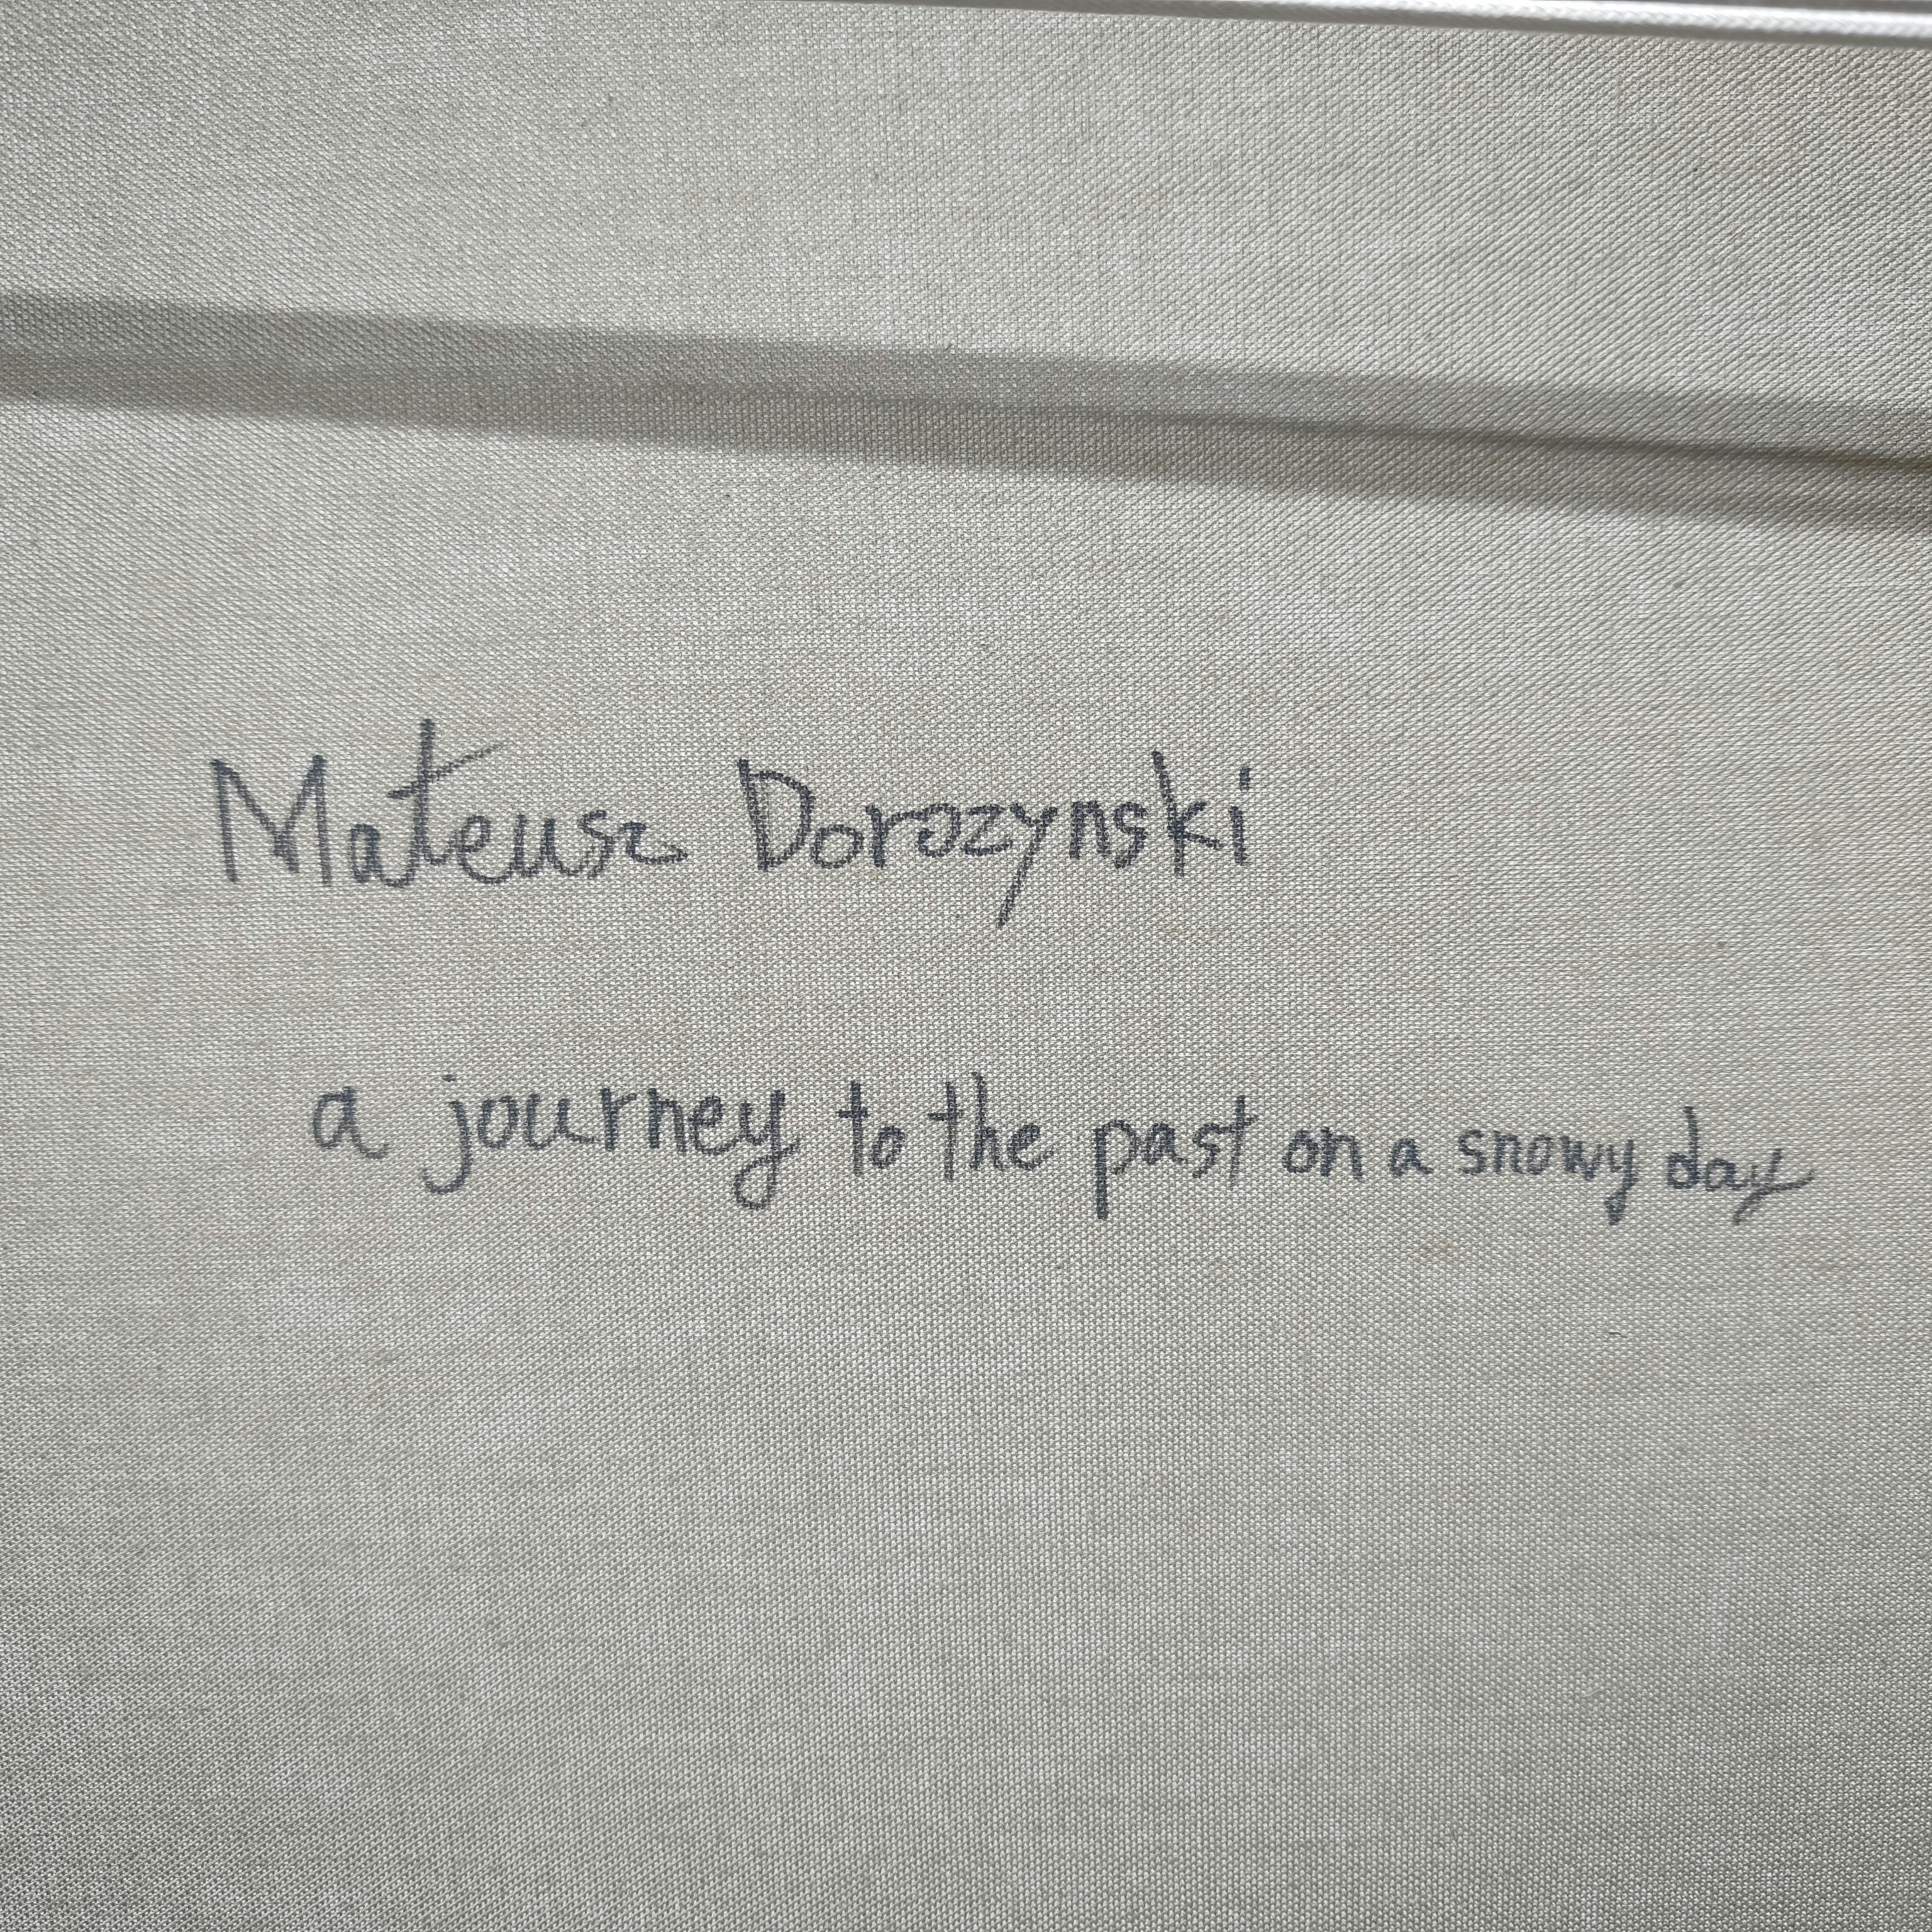 Mateusz Dorozynski
a journey to the past on a snowy day